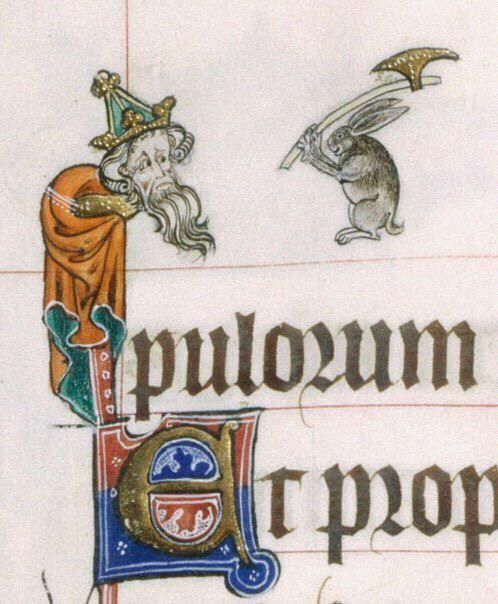 pulorum
Et prop